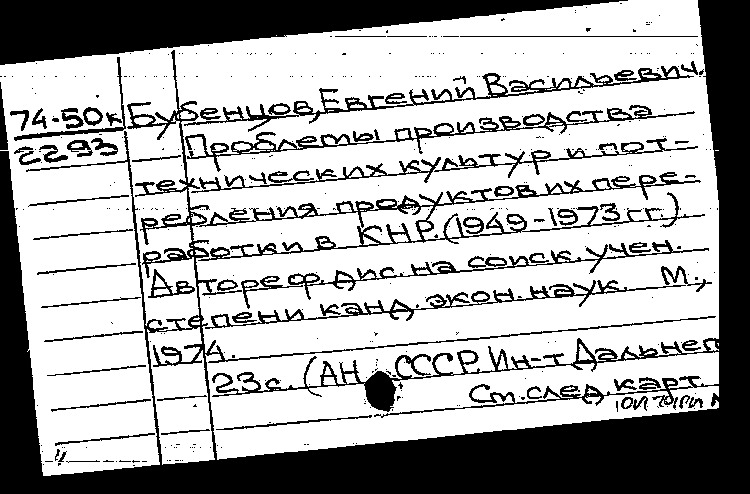 74-50к Бубенцов, Евгений Васильевич.
2293 Проблемы производства
технических культур и пот-
ребления продуктов их пере-
работки в КНР. (1949-1973 гг.)
Автореф. дис. на соиск. учен.
степени канд. экон. наук. М.,
1974.
23с. (АН СССР. Ин-т Дальнег
См. след. карт.